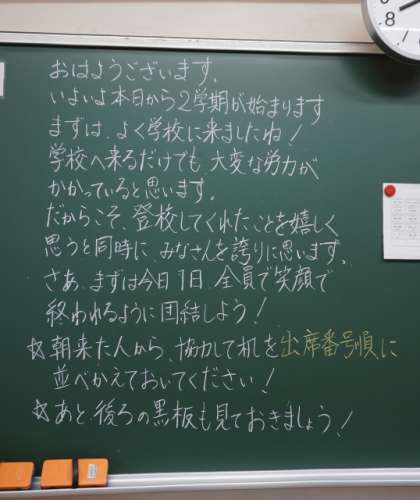 おはようございます。
いよいよ本日から2学期が始まります
まずは、よく学校に来ましたね!
学校へ来るだけでも、大変な労力が
かかっていると思います。
だからこそ、登校してくれたことを嬉しく
思うと同時に、みなさんを誇りに思います。
さあ、まずは今日1日、全員で笑顔で
終われるように団結しよう!
☆朝来た人から、協力して机を出席番号順に
並べかえておいてください!
☆あと、後ろの黒板も見ておきましょう!